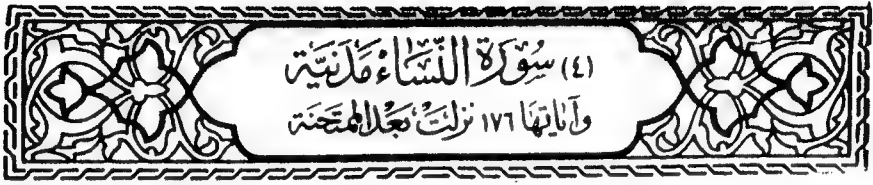 (٤) سُورَةُ النِّسَاءِ مَدَنِيَّة
وَآيَاتُهَا ١٧٦ نَزَلَتْ بَعْدَ الْمُمْتَحَنَة